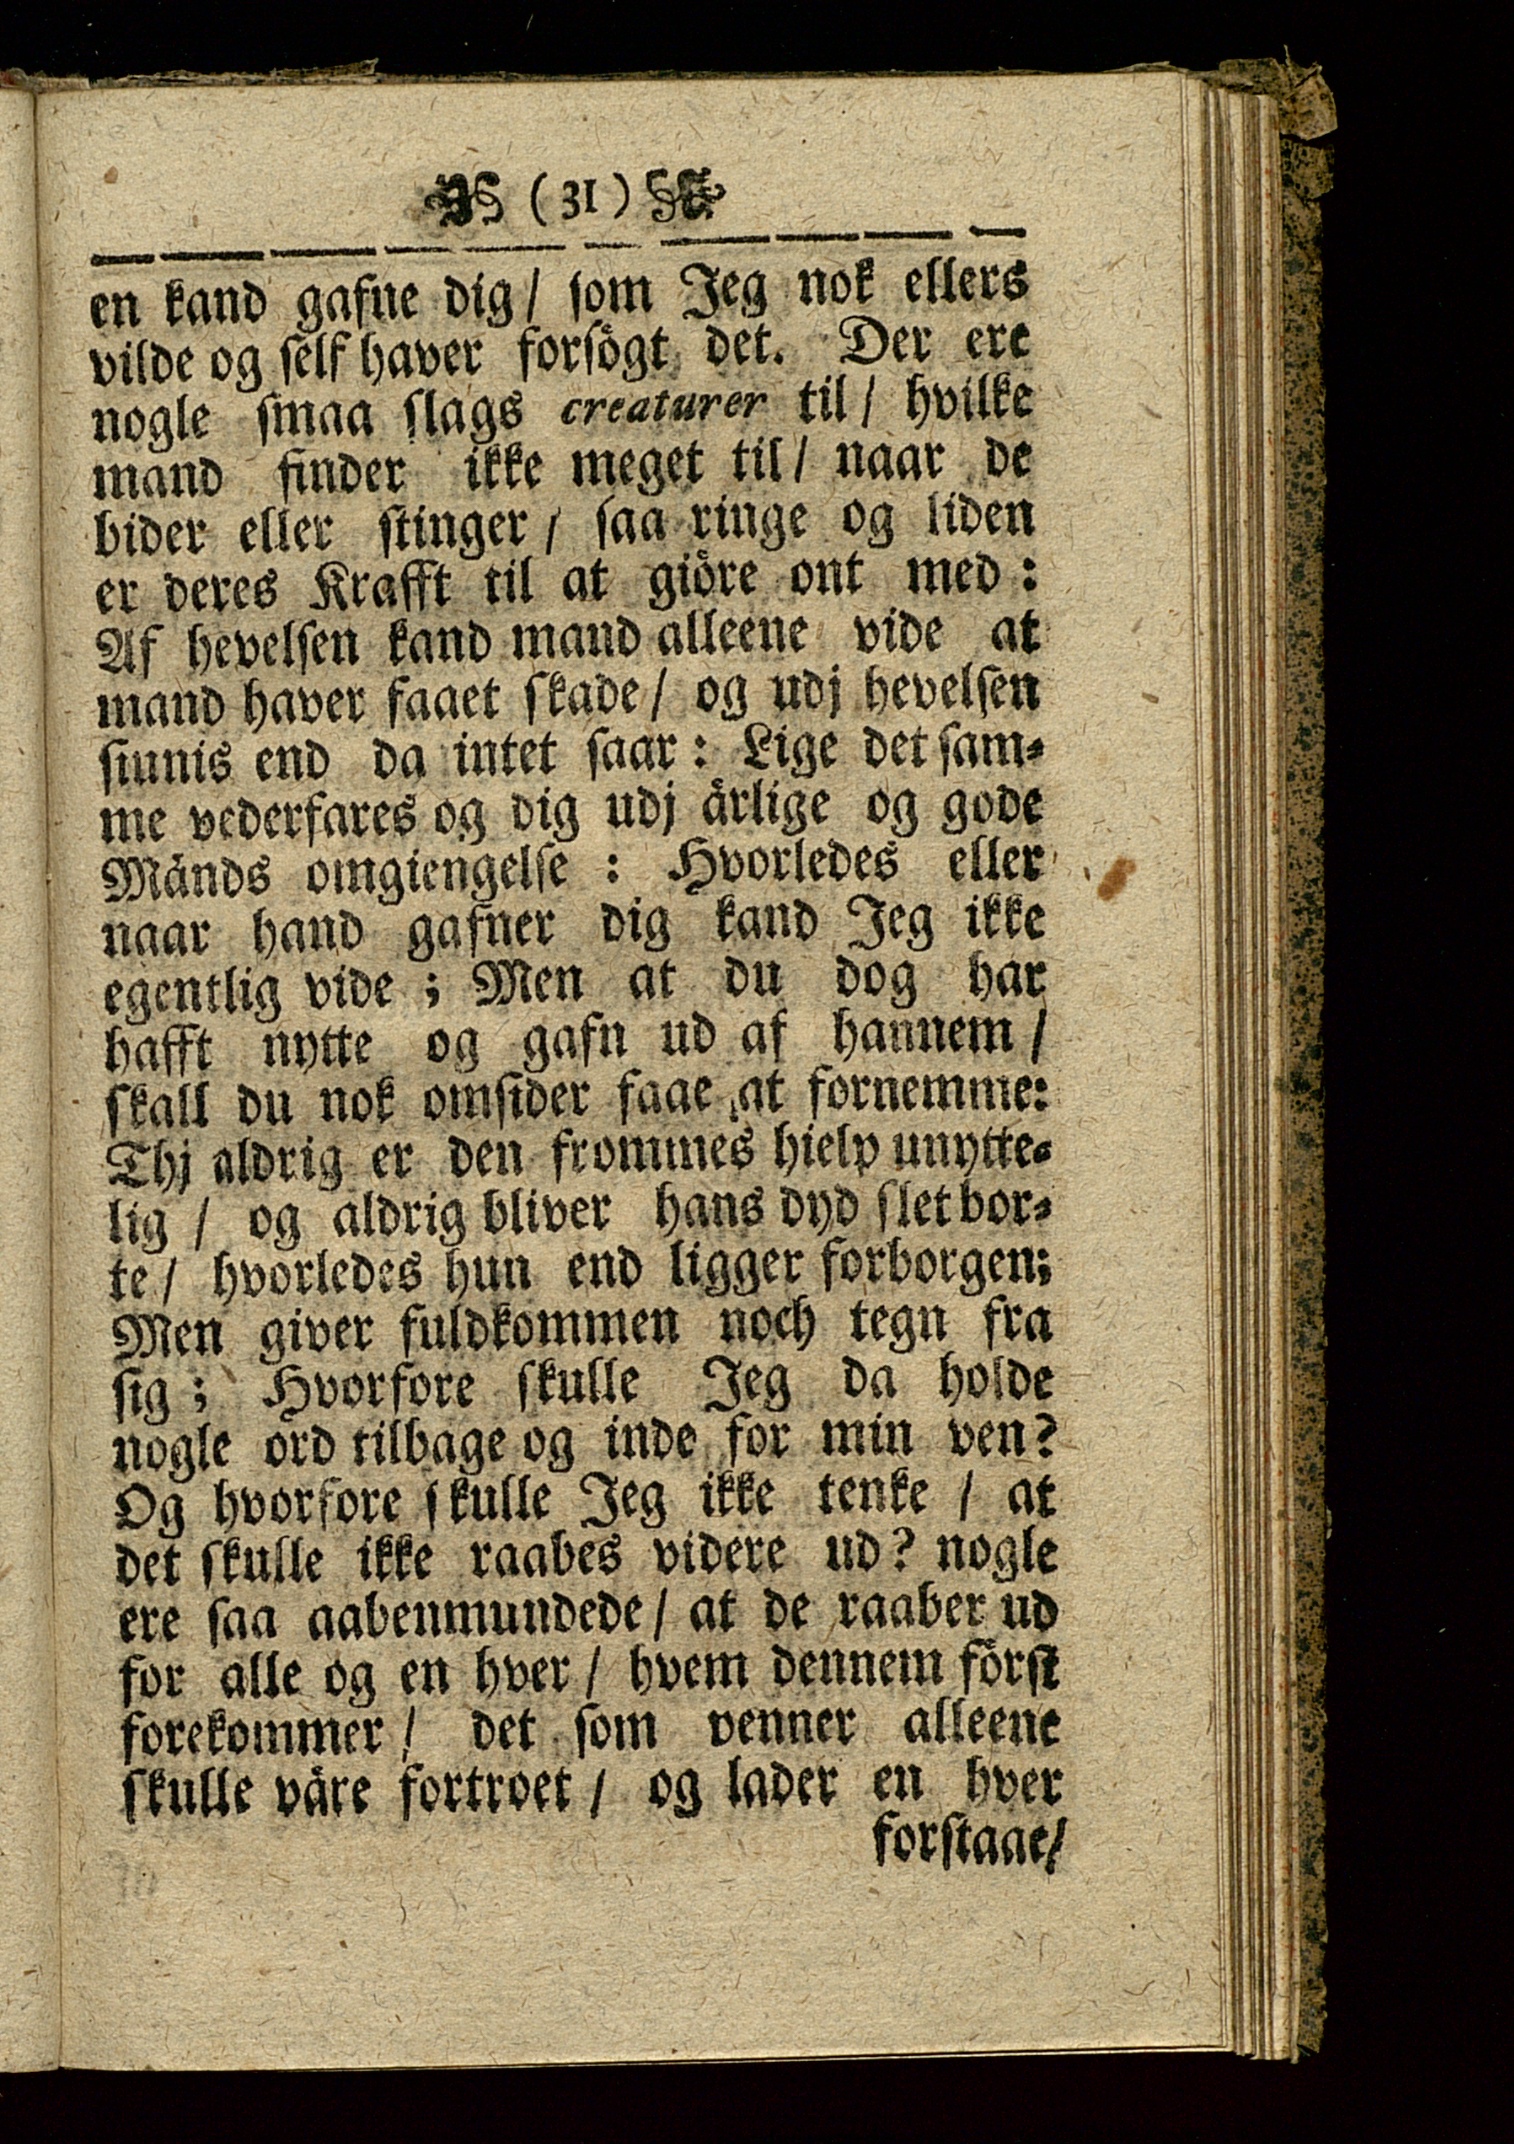 ( 31 )
en kand gafne dig / som Jeg nok ellers
vilde og self haver forsögt det. Der ere
nogle smaa slags creaturer til / hvilke
mand finder ikke meget til / naar de
bider eller stinger / saa ringe og liden
er deres Krafft til at giöre ont med :
Af hevelsen kand mand alleene vide at
mand haver faaet skade / og udj hevelsen
siunis end da intet saar : Lige det sam-
me vederfares og dig udj ärlige og gode
Mänds omgiengelse : Hvorledes eller
naar hand gafner dig kand Jeg ikke
egentlig vide ; Men at du dog har
hafft nytte og gafn ud af hannem /
skall du nok omsider faae at fornemme:
Thj aldrig er den frommes hielp unytte-
lig / og aldrig bliver hans dyd slet bor-
te / hvorledes hun end ligger forborgen;
Men giver fuldkommen noch tegn fra
sig ; Hvorfore skulle Jeg da holde
nogle ord tilbage og inde for min ven?
Og hvorfore skulle Jeg ikke tenke / at
det skulle ikke raabes videre ud? nogle
ere saa aabenmundede / at de raaber ud
for alle og en hver / hvem dennem först
forekommer / det som venner alleene
skulle väre fortroet / og lader en hver
forstaae/